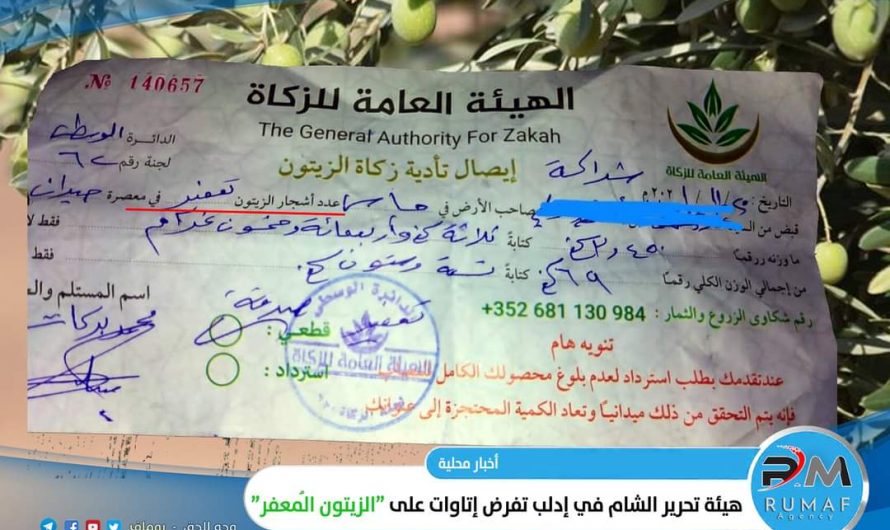 № 140657
الهيئة العامة للزكاة
The General Authority For Zakah
الهيئة العامة للزكاة
إيصال تأدية زكاة الزيتون
الدائرة الوسطى
لجنة رقم ٦٢
التاريخ :
قبض من السيد
صاحب الأرض في حاس عدد أشجار الزيتون تعفير في معصرة
ما وزنه رقماً ٣,٤٥٠ كغ كتابة ثلاثة كغ وأربعمائة وخمسون غرام فقط
من إجمالي الوزن الكلي رقماً ٦٩ كغ كتابة تسعة وستون كغ فقط
رقم شكاوى الزروع والثمار : +352 681 130 984
اسم المستلم
محمد بركات
قطعي :
استرداد :
الدائرة الوسطى
الهيئة العامة للزكاة
تنويه هام
عند تقدمك بطلب استرداد لعدم بلوغ محصولك الكامل
فإنه يتم التحقق من ذلك ميدانياً وتعاد الكمية المحتجزة إلى عنوانك
أخبار محلية
هيئة تحرير الشام في إدلب تفرض إتاوات على ”الزيتون المُعفر”
RUMAF
Agency